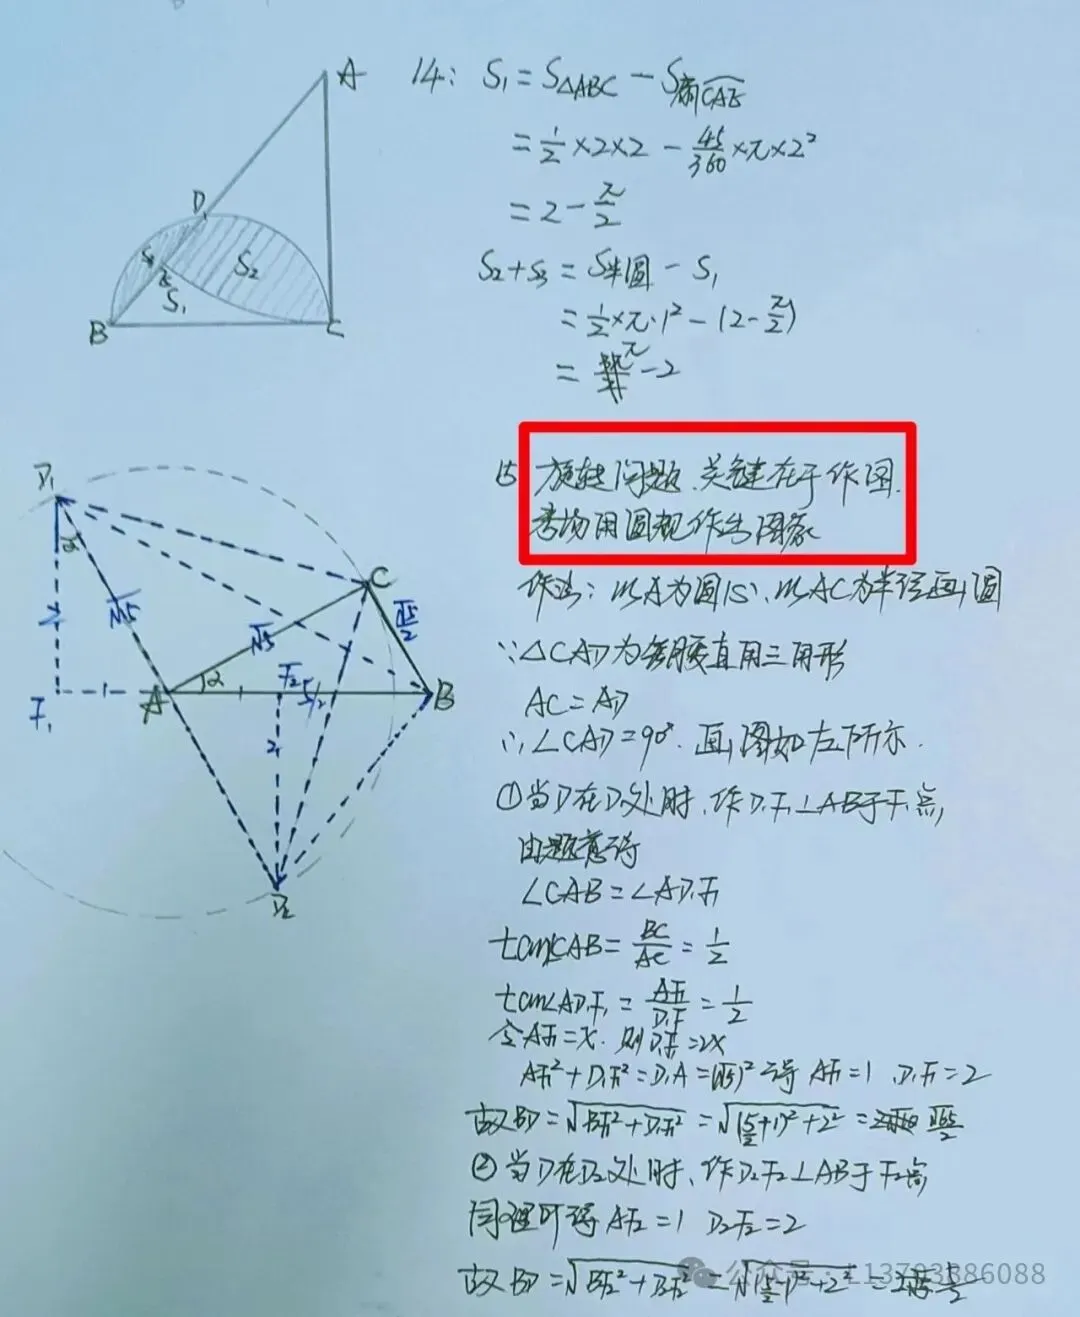 A
D
S₂
S₁
B
C
14: S₁ = S△ABC - S扇CAE
= 1/2 ×2×2 - 45/360 ×π×2²
= 2 - π/2
S₂+S₃ = S半圆 - S₁
= 1/2 ×π·1² - (2-π/2)
= π-2
15 旋转问题、关键在于作图.
考场用圆规作出图象
作法: 以A为圆心、以AC为半径画圆
∵△CAD为等腰直角三角形
AC=AD
∴∠CAD=90°. 画图如左下所示.
①当D在D₁处时、作D₁F₁⊥AB于F₁点,
由题意得
∠CAB=∠AD₁F₁
tan∠CAB= BC/AC = 1/2
tan∠AD₁F₁ = AF₁/D₁F = 1/2
令AF₁=x. 则D₁F₁=2x
AF₁²+D₁F₁²=D₁A=(√5)² 得 AF₁=1、D₁F₁=2
故BD=√(BF₁²+D₁F₁²)=√((5/2+1)²+2²)= √65/2
②当D在D₂处时、作D₂F₂⊥AB于F₂点
同理可得 AF₂=1 D₂F₂=2
故BD=√(BF₂²+BF₂²)=√((5/2-1)²+2²)= 5/2
D₁
α
2
√5
F₁
1
A
α
√5
C
√5/2
F₂
5/2
B
2
D₂
公众号: L13793886088